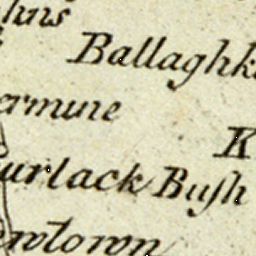 hns
Ballaghk
ermine
K
urlack Buſh
ewtown